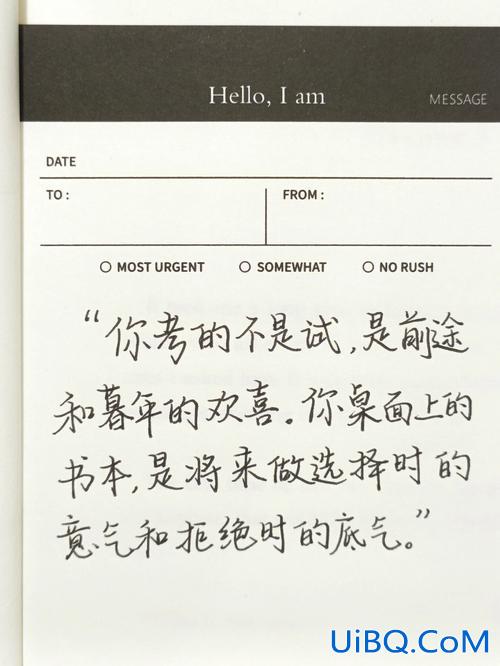 Hello, I am
MESSAGE
DATE
TO :
FROM :
MOST URGENT
SOMEWHAT
NO RUSH
“你考的不是试,是前途
和暮年的欢喜。你桌面上的
书本,是将来做选择时的
意气和拒绝时的底气。”
UiBQ.CoM